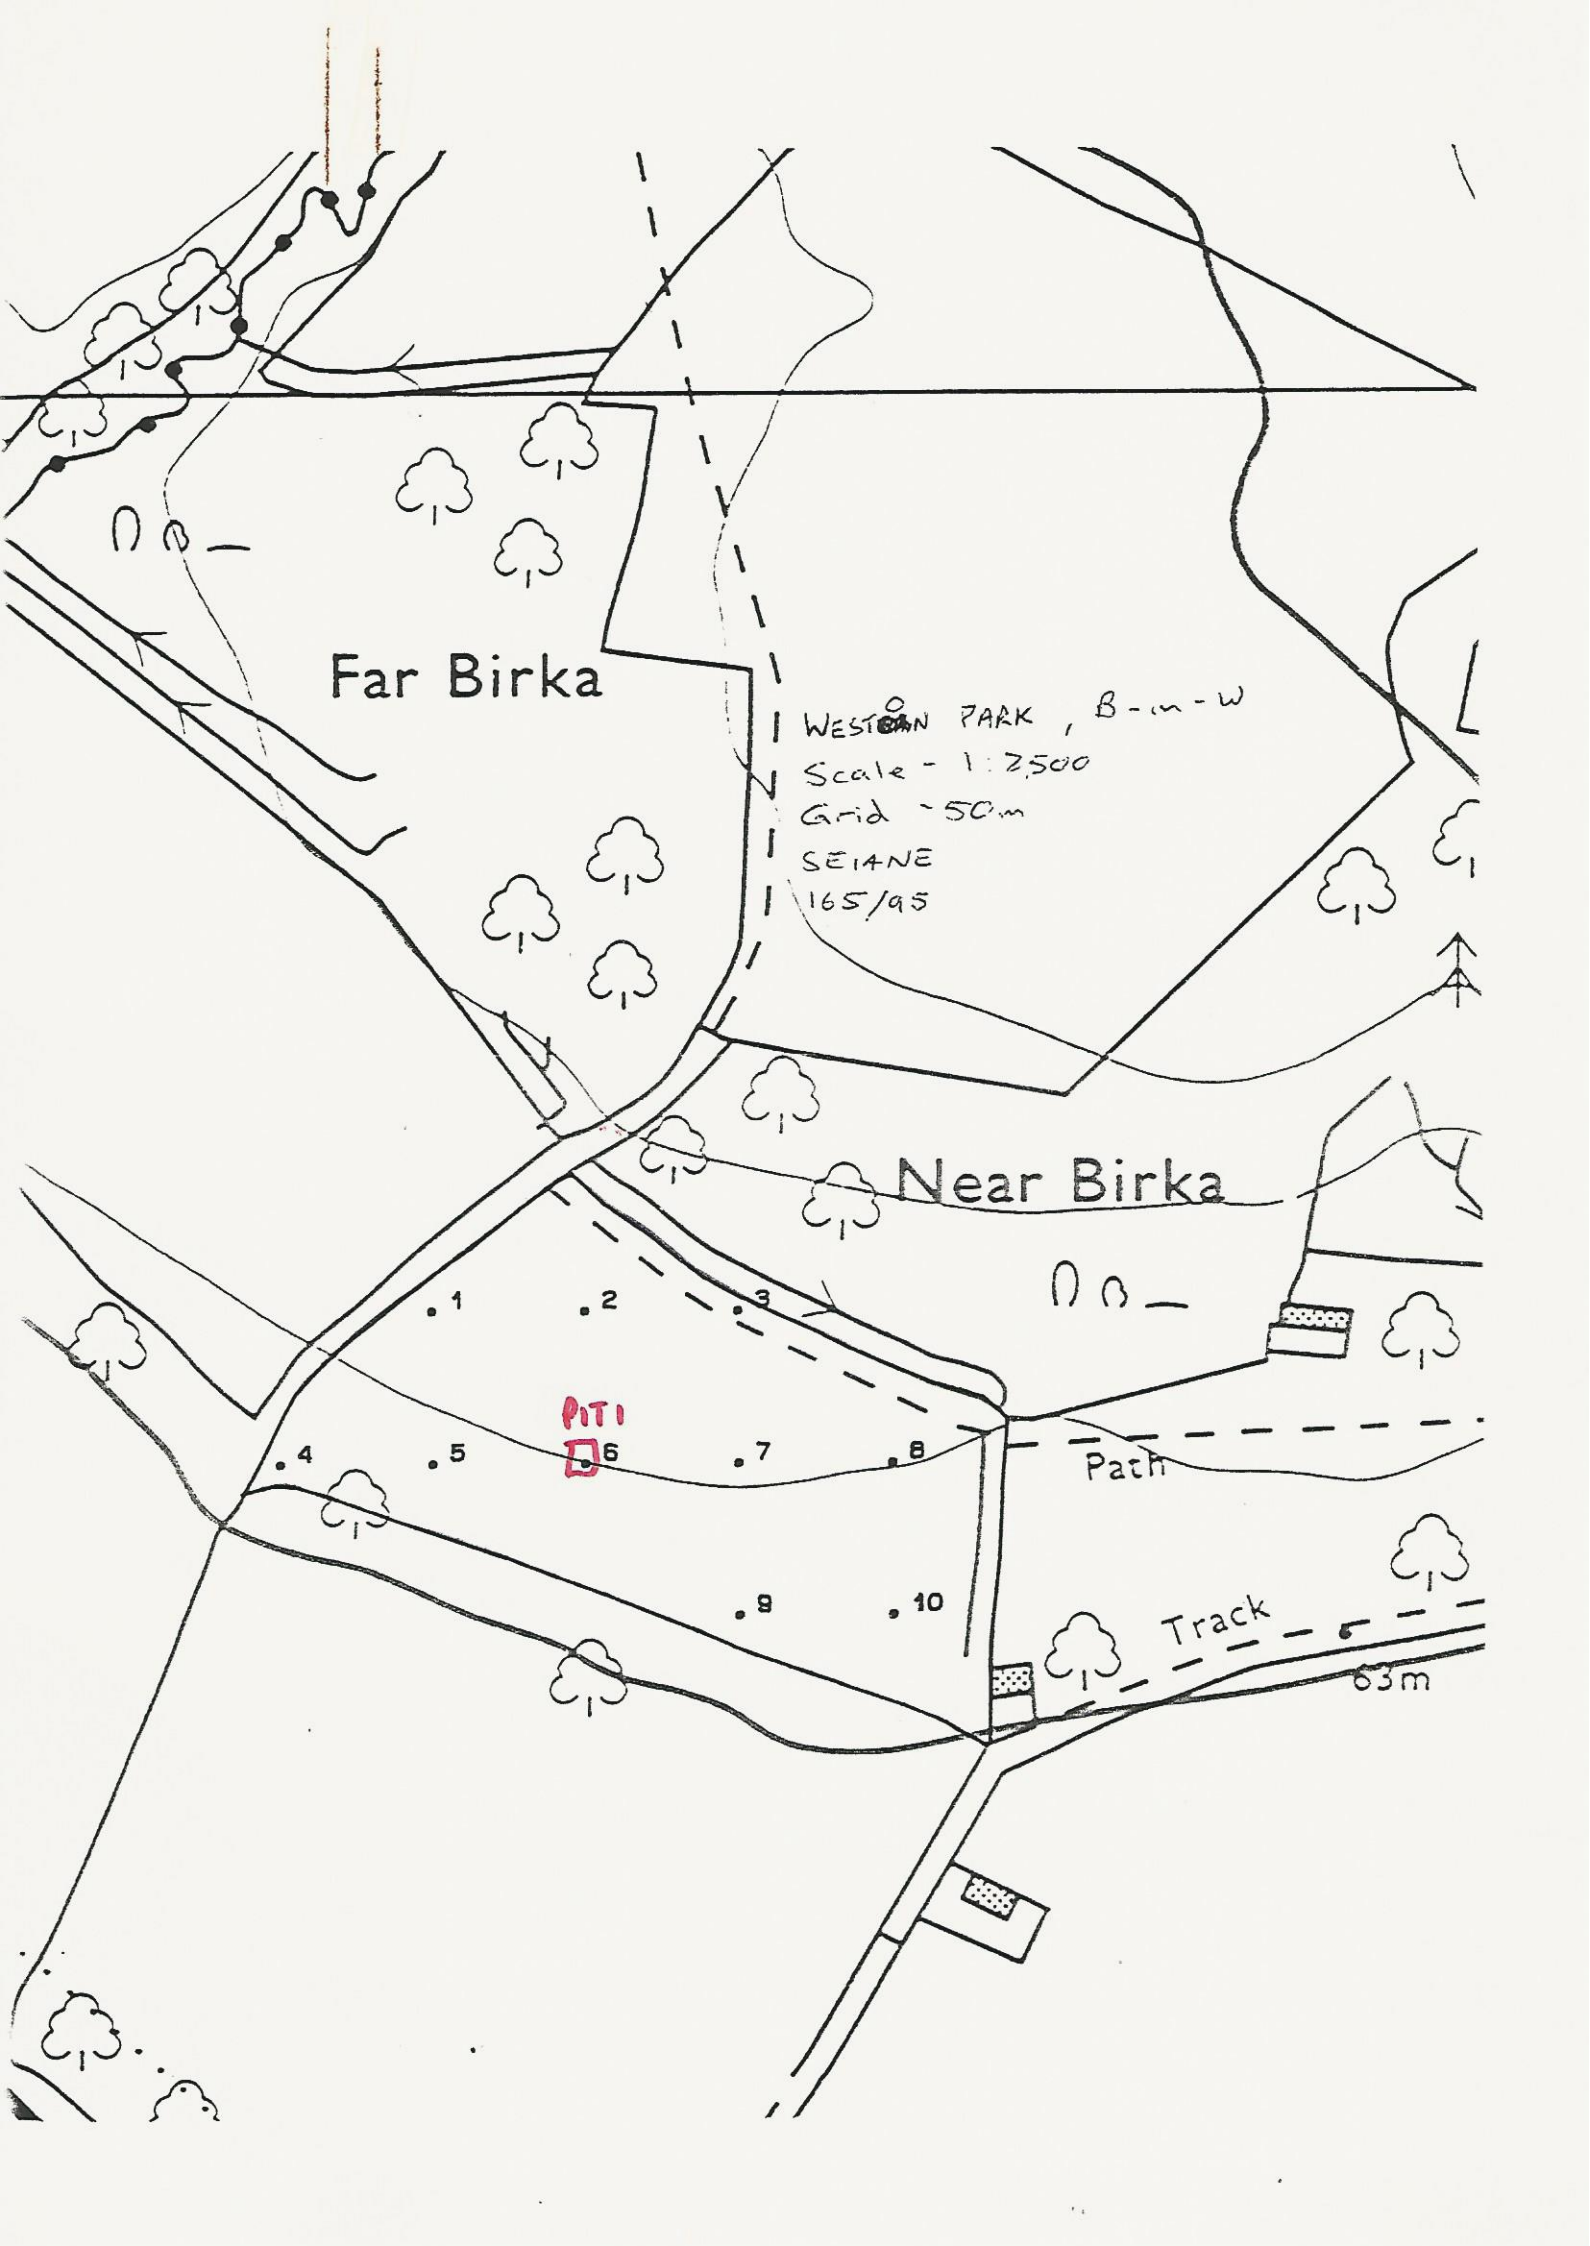 Far Birka
WESTON PARK, B-in-W
Scale - 1:2,500
Grid - 50m
SE14NE
165/95
Near Birka
1
2
3
PIT 1
4
5
6
7
8
Path
9
10
Track
63m